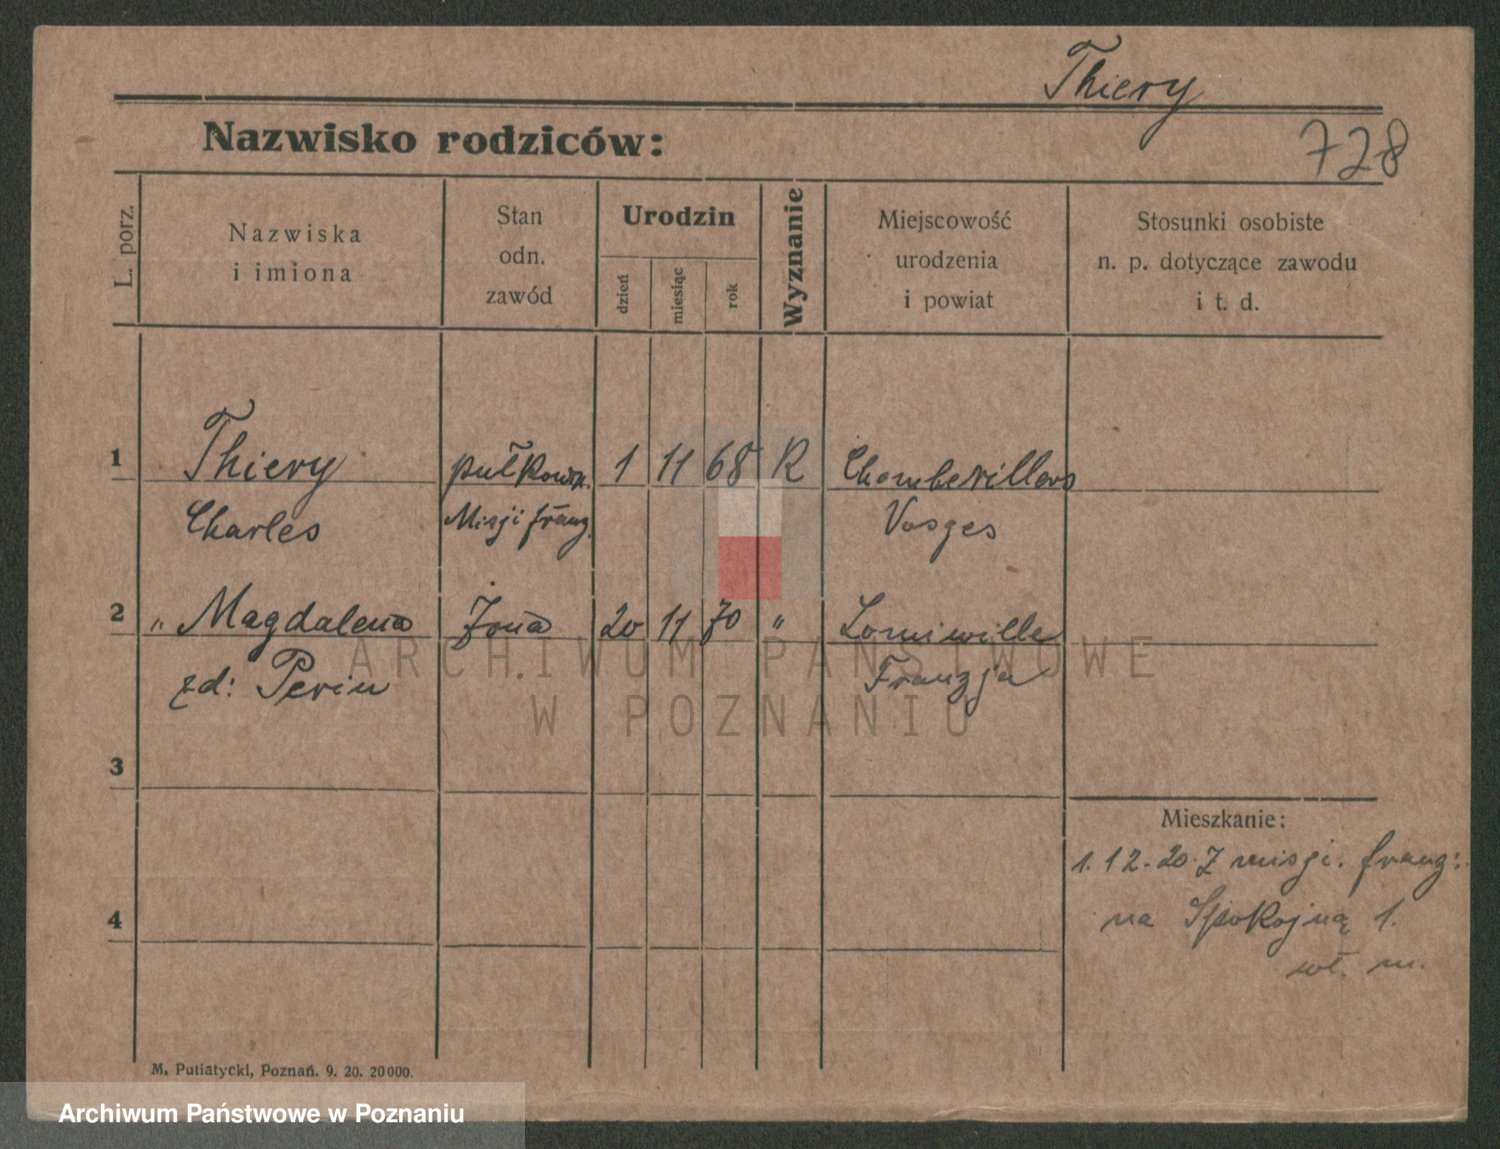 Thiery
728
Nazwisko rodziców:
L. porz.
Nazwiska
i imiona
Stan
odn.
zawód
Urodzin
dzień
miesiąc
rok
Wyznanie
Miejscowość
urodzenia
i powiat
Stosunki osobiste
n. p. dotyczące zawodu
i t. d.
1 Thiery pułkown. 1 11 68 R Chambevillars
Charles Misji franz. Vosges
2 " Magdalena Żona 20 11 70 " Lomiwille
zd: Perin Franzja
3
4
Mieszkanie:
1.12.20. Z misji. franz:
na Spokojną 1.
wł. m.
M. Putiatycki, Poznań. 9. 20. 20000.
ARCHIWUM PAŃSTWOWE
W POZNANIU
Archiwum Państwowe w Poznaniu